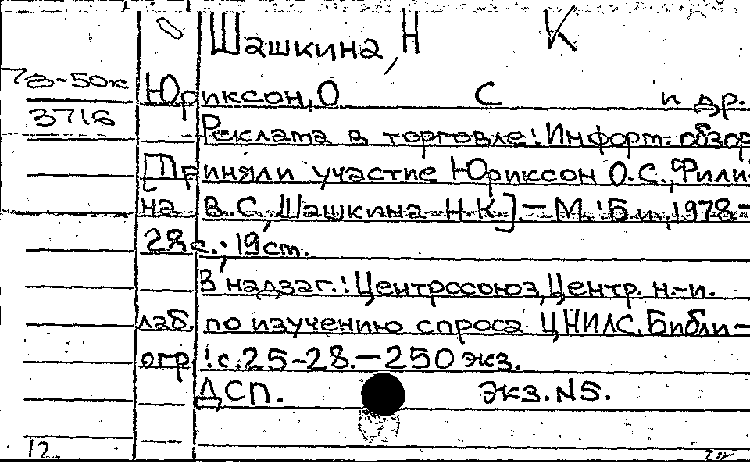 Шашкина, Н К
78-50к
Юриксон, О С и др.
3716
Реклама в торговле: Информ. обзор
[Приняли участие Юриксон О.С., Фили-
на В.С., Шашкина Н.К.]. - М.: Б.и., 1978-
28с.; 19см.
В надзаг.: Центросоюз, Центр. н.-и.
лаб. по изучению спроса ЦНИЛС. Библи-
огр.: с.25-28. - 250 экз.
ДСП. Экз. N5.
12